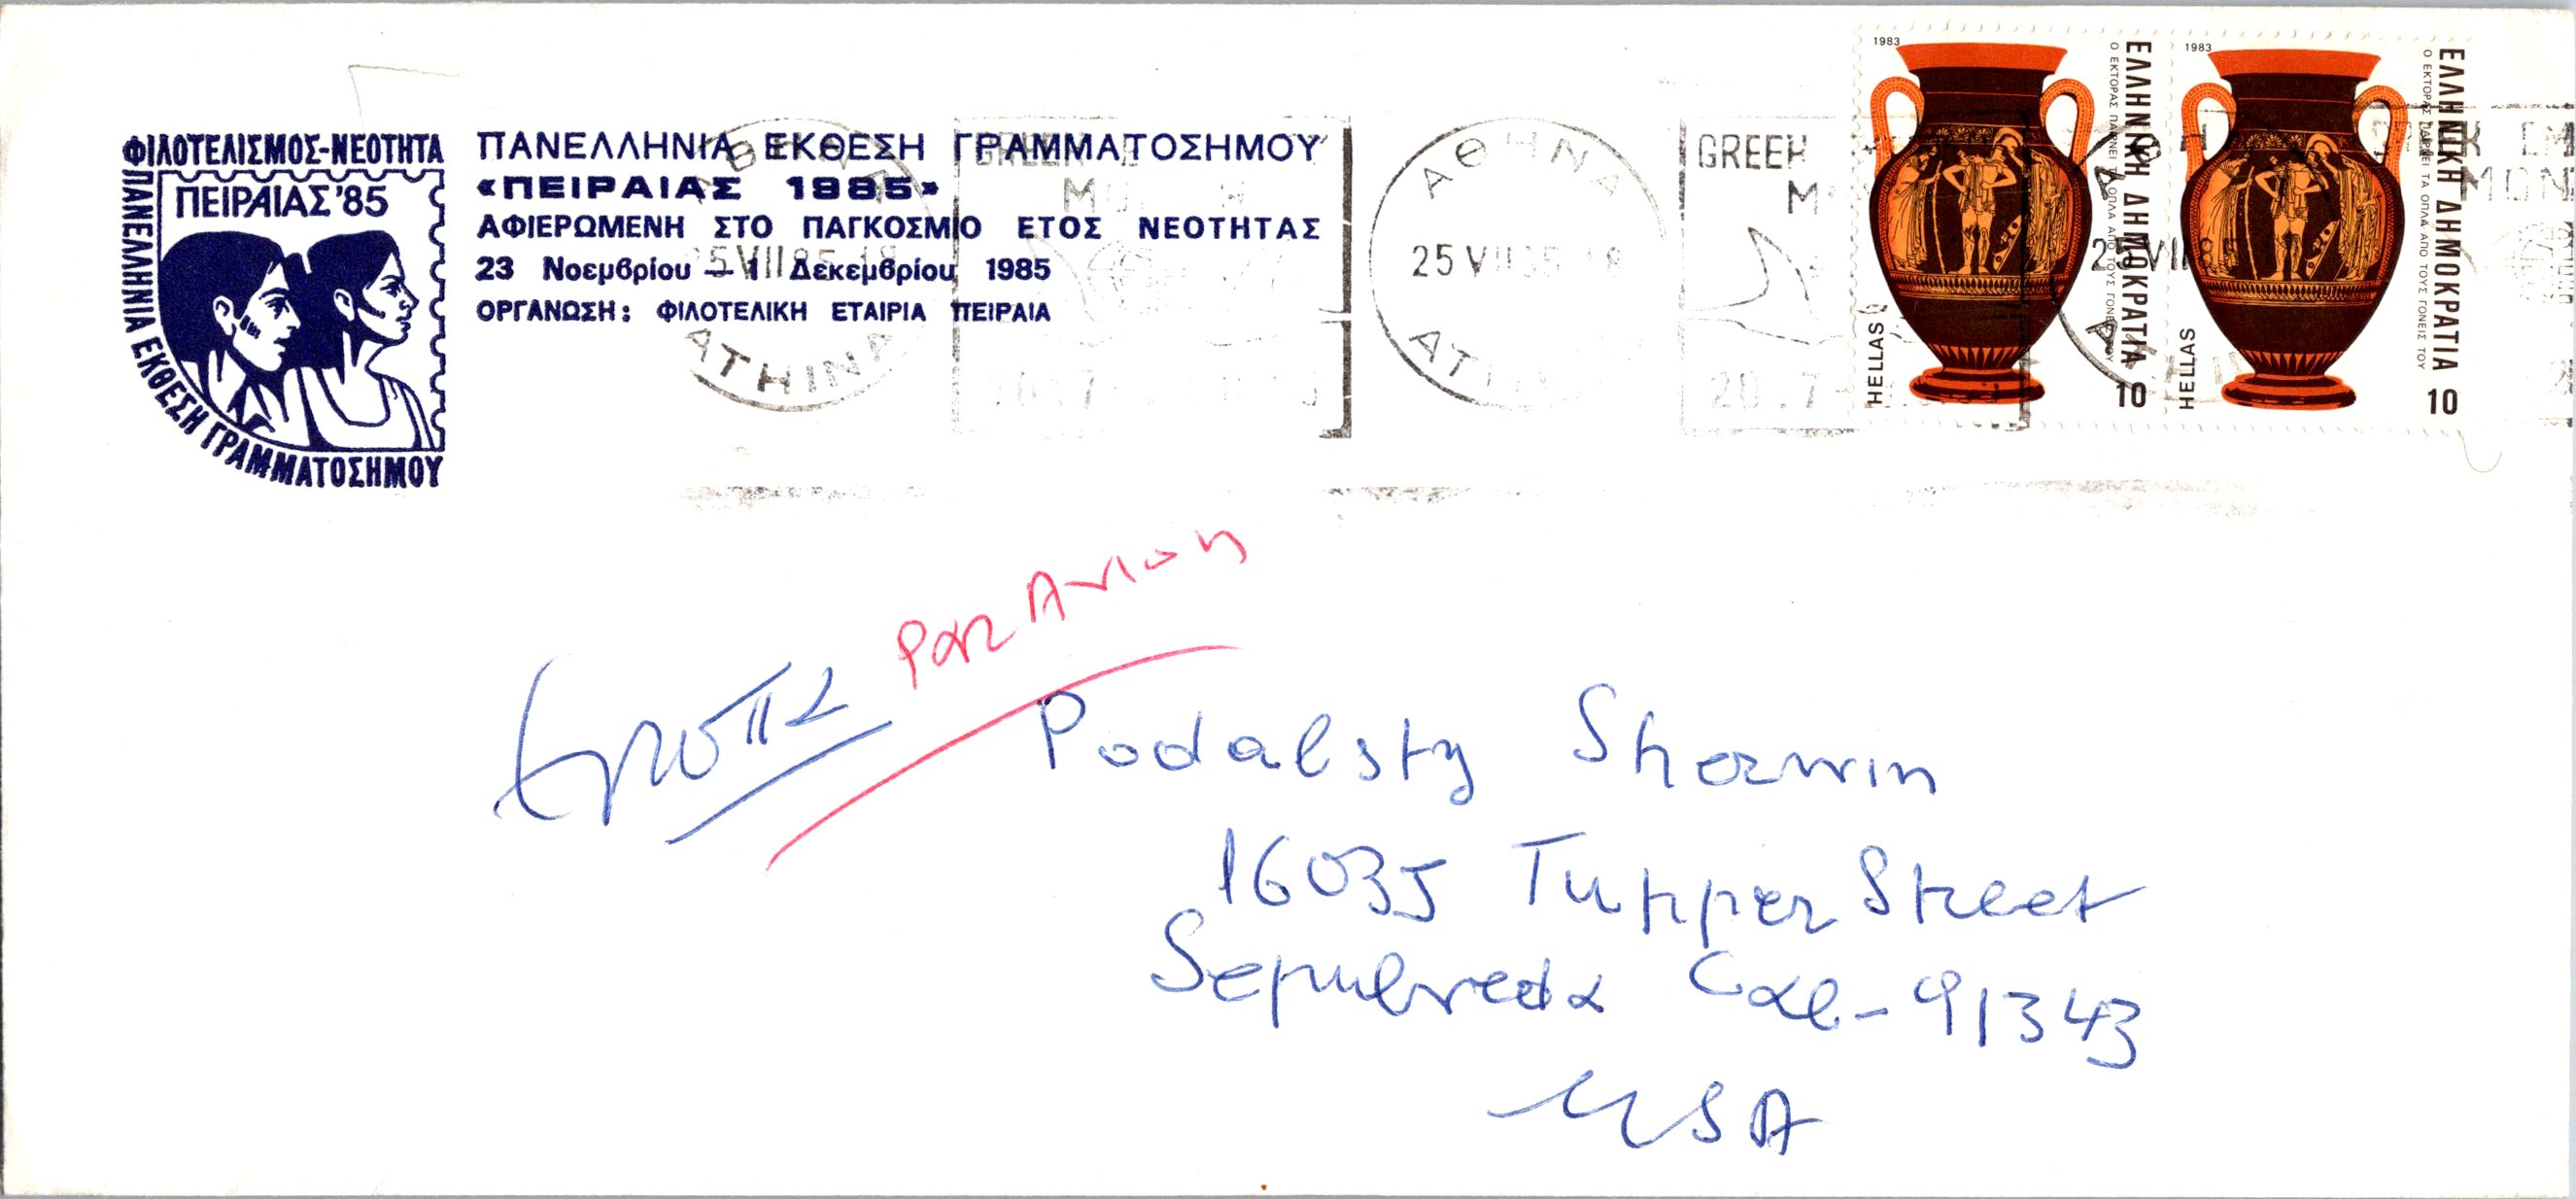 ΦΙΛΟΤΕΛΙΣΜΟΣ-ΝΕΟΤΗΤΑ
ΠΑΝΕΛΛΗΝΙΑ ΕΚΘΕΣΗ ΓΡΑΜΜΑΤΟΣΗΜΟΥ
ΠΕΙΡΑΙΑΣ '85
ΠΑΝΕΛΛΗΝΙΑ ΕΚΘΕΣΗ ΓΡΑΜΜΑΤΟΣΗΜΟΥ
«ΠΕΙΡΑΙΑΣ 1985»
ΑΦΙΕΡΩΜΕΝΗ ΣΤΟ ΠΑΓΚΟΣΜΙΟ ΕΤΟΣ ΝΕΟΤΗΤΑΣ
23 Νοεμβρίου – 1 Δεκεμβρίου 1985
ΟΡΓΑΝΩΣΗ: ΦΙΛΟΤΕΛΙΚΗ ΕΤΑΙΡΙΑ ΠΕΙΡΑΙΑ
ATHINA
ΑΘΗΝΑ
25 VII 85 18
GREEK
20.7
1983
ΕΛΛΗΝΙΚΗ ΔΗΜΟΚΡΑΤΙΑ
Ο ΕΚΤΟΡΑΣ ΠΑΙΡΝΕΙ ΤΑ ΟΠΛΑ ΑΠΟ ΤΟΥΣ ΓΟΝΕΙΣ ΤΟΥ
HELLAS
10
1983
ΕΛΛΗΝΙΚΗ ΔΗΜΟΚΡΑΤΙΑ
Ο ΕΚΤΟΡΑΣ ΠΑΙΡΝΕΙ ΤΑ ΟΠΛΑ ΑΠΟ ΤΟΥΣ ΓΟΝΕΙΣ ΤΟΥ
HELLAS
10
Par Avion
Podalsky Sherwin
16035 Tupper Street
Sepulveda Cal- 91343
USA